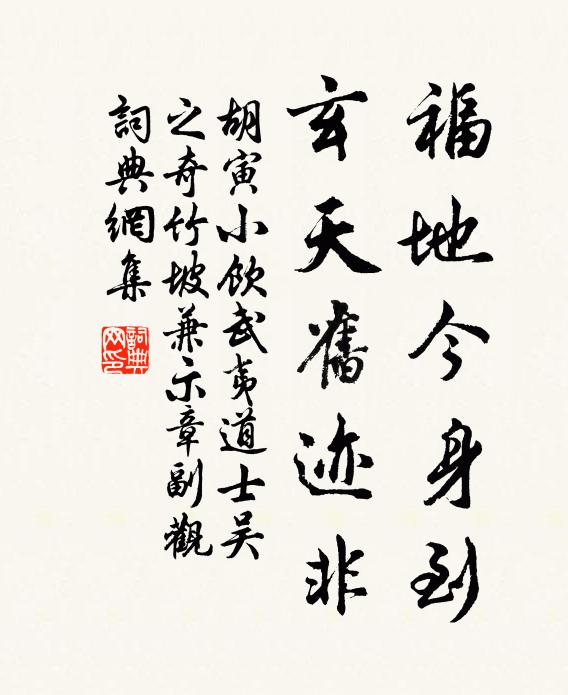 福地今身到
玄天舊迹非
胡寅小飲武夷道士吴
之奇竹坡兼示章副觀
詞典網集
詞典網印